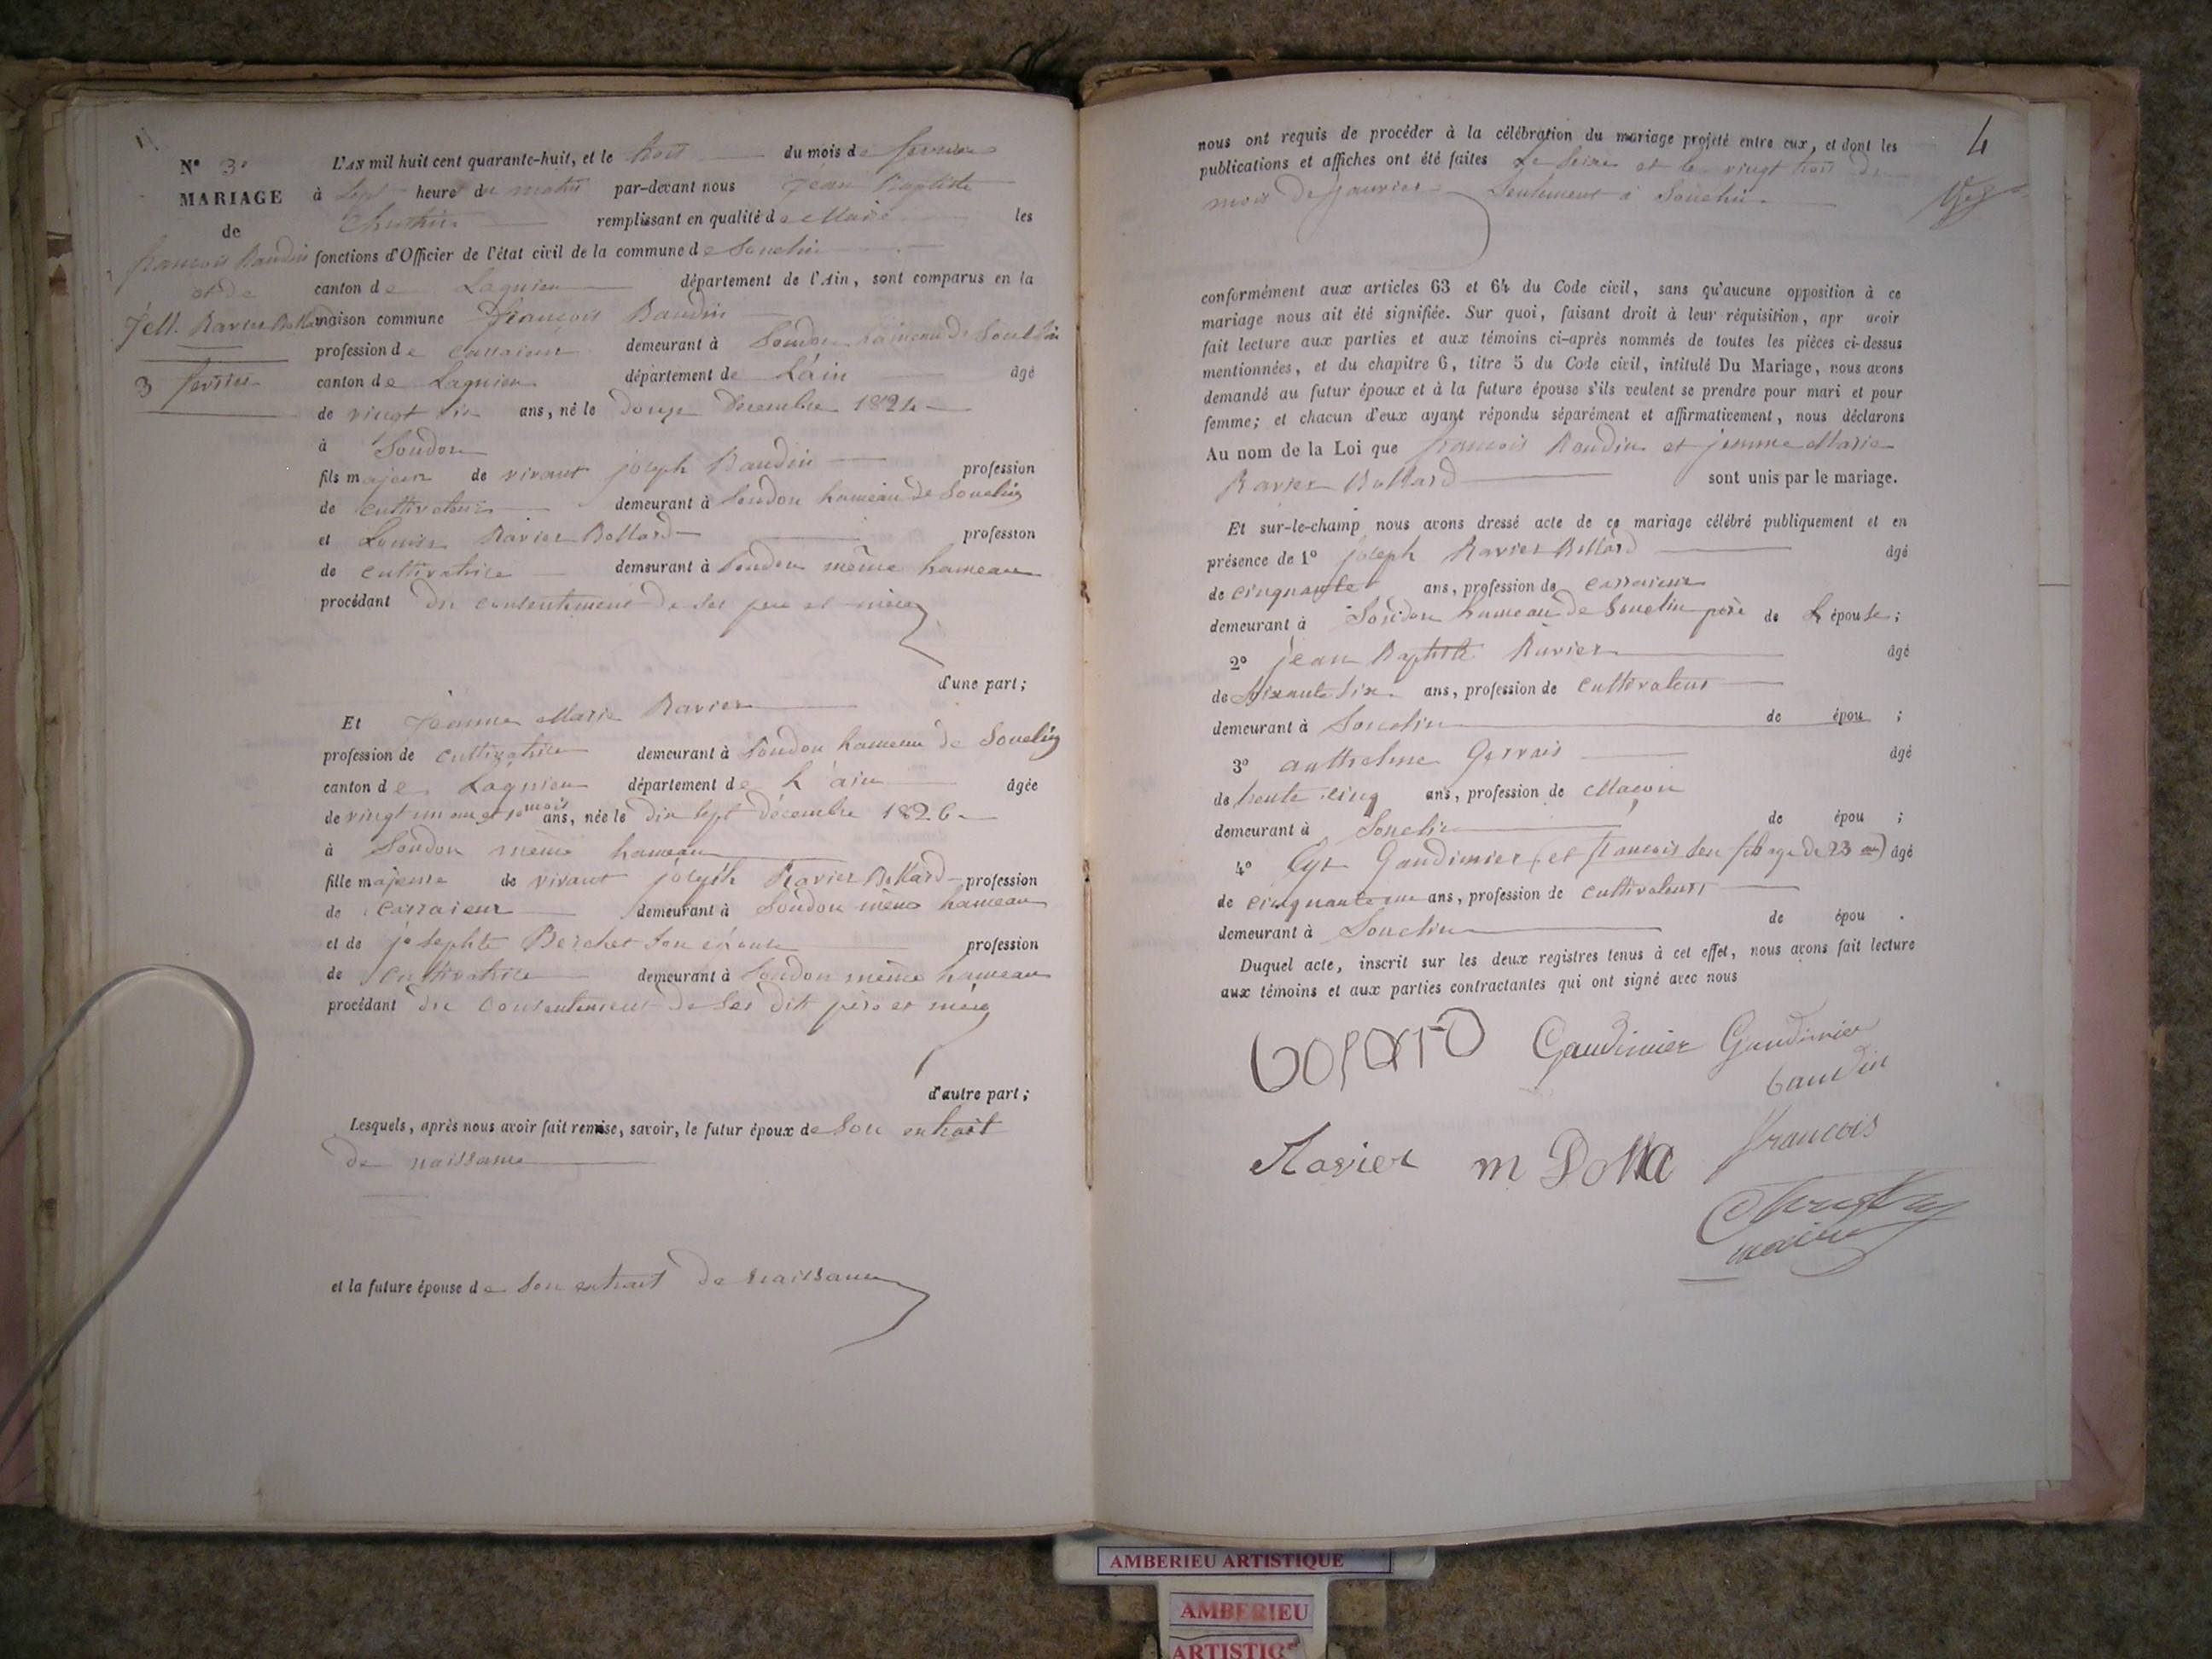 N° 3.
MARIAGE
de
françois Baudin
et de
J.e M. Ravier Bollard
3 fevrier
L'AN mil huit cent quarante-huit, et le trois du mois de fevrier
à sept heures du matin par-devant nous Jean Baptiste
remplissant en qualité de Maire les
fonctions d'Officier de l'état civil de la commune de Souclin
canton de Lagnieu département de l'Ain, sont comparus en la
maison commune François Baudin
profession de carraieur demeurant à Soudon hameau de Souclin
canton de Lagnieu département de L'ain âgé
de vingt ans, né le douze Decembre 1824
à Soudon
fils majeur de vivant joseph Baudin profession
de cultivateur demeurant à Soudon hameau de Souclin
et Louise Ravier Bollard profession
de cultivatrice demeurant à Soudon même hameau
procédant du consentement de ses père et mère
d'une part;
Et Jeanne Marie Ravier
profession de cultivatrice demeurant à Soudon hameau de Souclin
canton de Lagnieu département de L'ain âgée
de vingt un ans et mois ans, née le dix sept décembre 1826
à Soudon même hameau
fille majeure de vivant joseph Ravier Bollard profession
de carraieur demeurant à Soudon même hameau
et de josephte Berchet son épouse profession
de cultivatrice demeurant à Soudon même hameau
procédant du consentement de ses dit père et mère
d'autre part;
Lesquels, après nous avoir fait remise, savoir, le futur époux de son extrait
de naissance
et la future épouse de son extrait de naissance
4
nous ont requis de procéder à la célébration du mariage projeté entre eux, et dont les
publications et affiches ont été faites Le Seize et le vingt trois du
mois de janvier Seulement à Souclin
conformément aux articles 63 et 64 du Code civil, sans qu'aucune opposition à ce
mariage nous ait été signifiée. Sur quoi, faisant droit à leur réquisition, apr avoir
fait lecture aux parties et aux témoins ci-après nommés de toutes les pièces ci-dessus
mentionnées, et du chapitre 6, titre 5 du Code civil, intitulé Du Mariage, nous avons
demandé au futur époux et à la future épouse s'ils veulent se prendre pour mari et pour
femme; et chacun d'eux ayant répondu séparément et affirmativement, nous déclarons
Au nom de la Loi que francois Baudin et jeanne Marie
Ravier Bollard sont unis par le mariage.
Et sur-le-champ nous avons dressé acte de ce mariage célébré publiquement et en
présence de 1° joseph Ravier Bollard âgé
de cinquante ans, profession de carraieur
demeurant à Soudon hameau de Souclin père de L'épouse;
2° jean Baptiste Ravier âgé
de soixante six ans, profession de cultivateur
demeurant à Souclin de épou ;
3° anthelme Gervais âgé
de trente cinq ans, profession de Maçon
demeurant à Souclin de épou ;
4° Cyr Gaudimier (et francois son fils age de 23 ans) âgé
de cinquante un ans, profession de cultivateurs
demeurant à Souclin de épou .
Duquel acte, inscrit sur les deux registres tenus à cet effet, nous avons fait lecture
aux témoins et aux parties contractantes qui ont signé avec nous
Gaudimier Gaudimier
baudin
francois
Ravier
maire
AMBERIEU ARTISTIQUE
AMBERIEU
ARTISTIQ